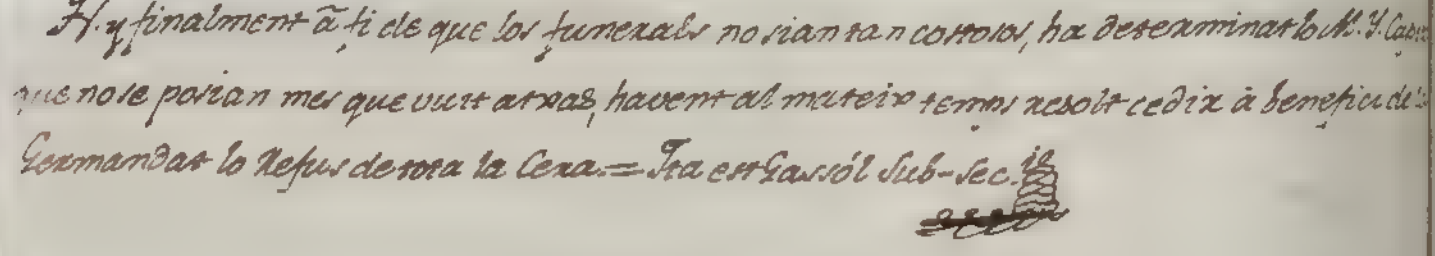 H. y finalment â fi de que los funerals no sian tan costosos, ha determinat lo M. Y. Capitol
que no se posian mes que vuit atxas, havent al mateix temps resolt cedir à benefici de la
Germandat lo Refus de tota la Cera. = Ita est Gassól Sub-Sec.